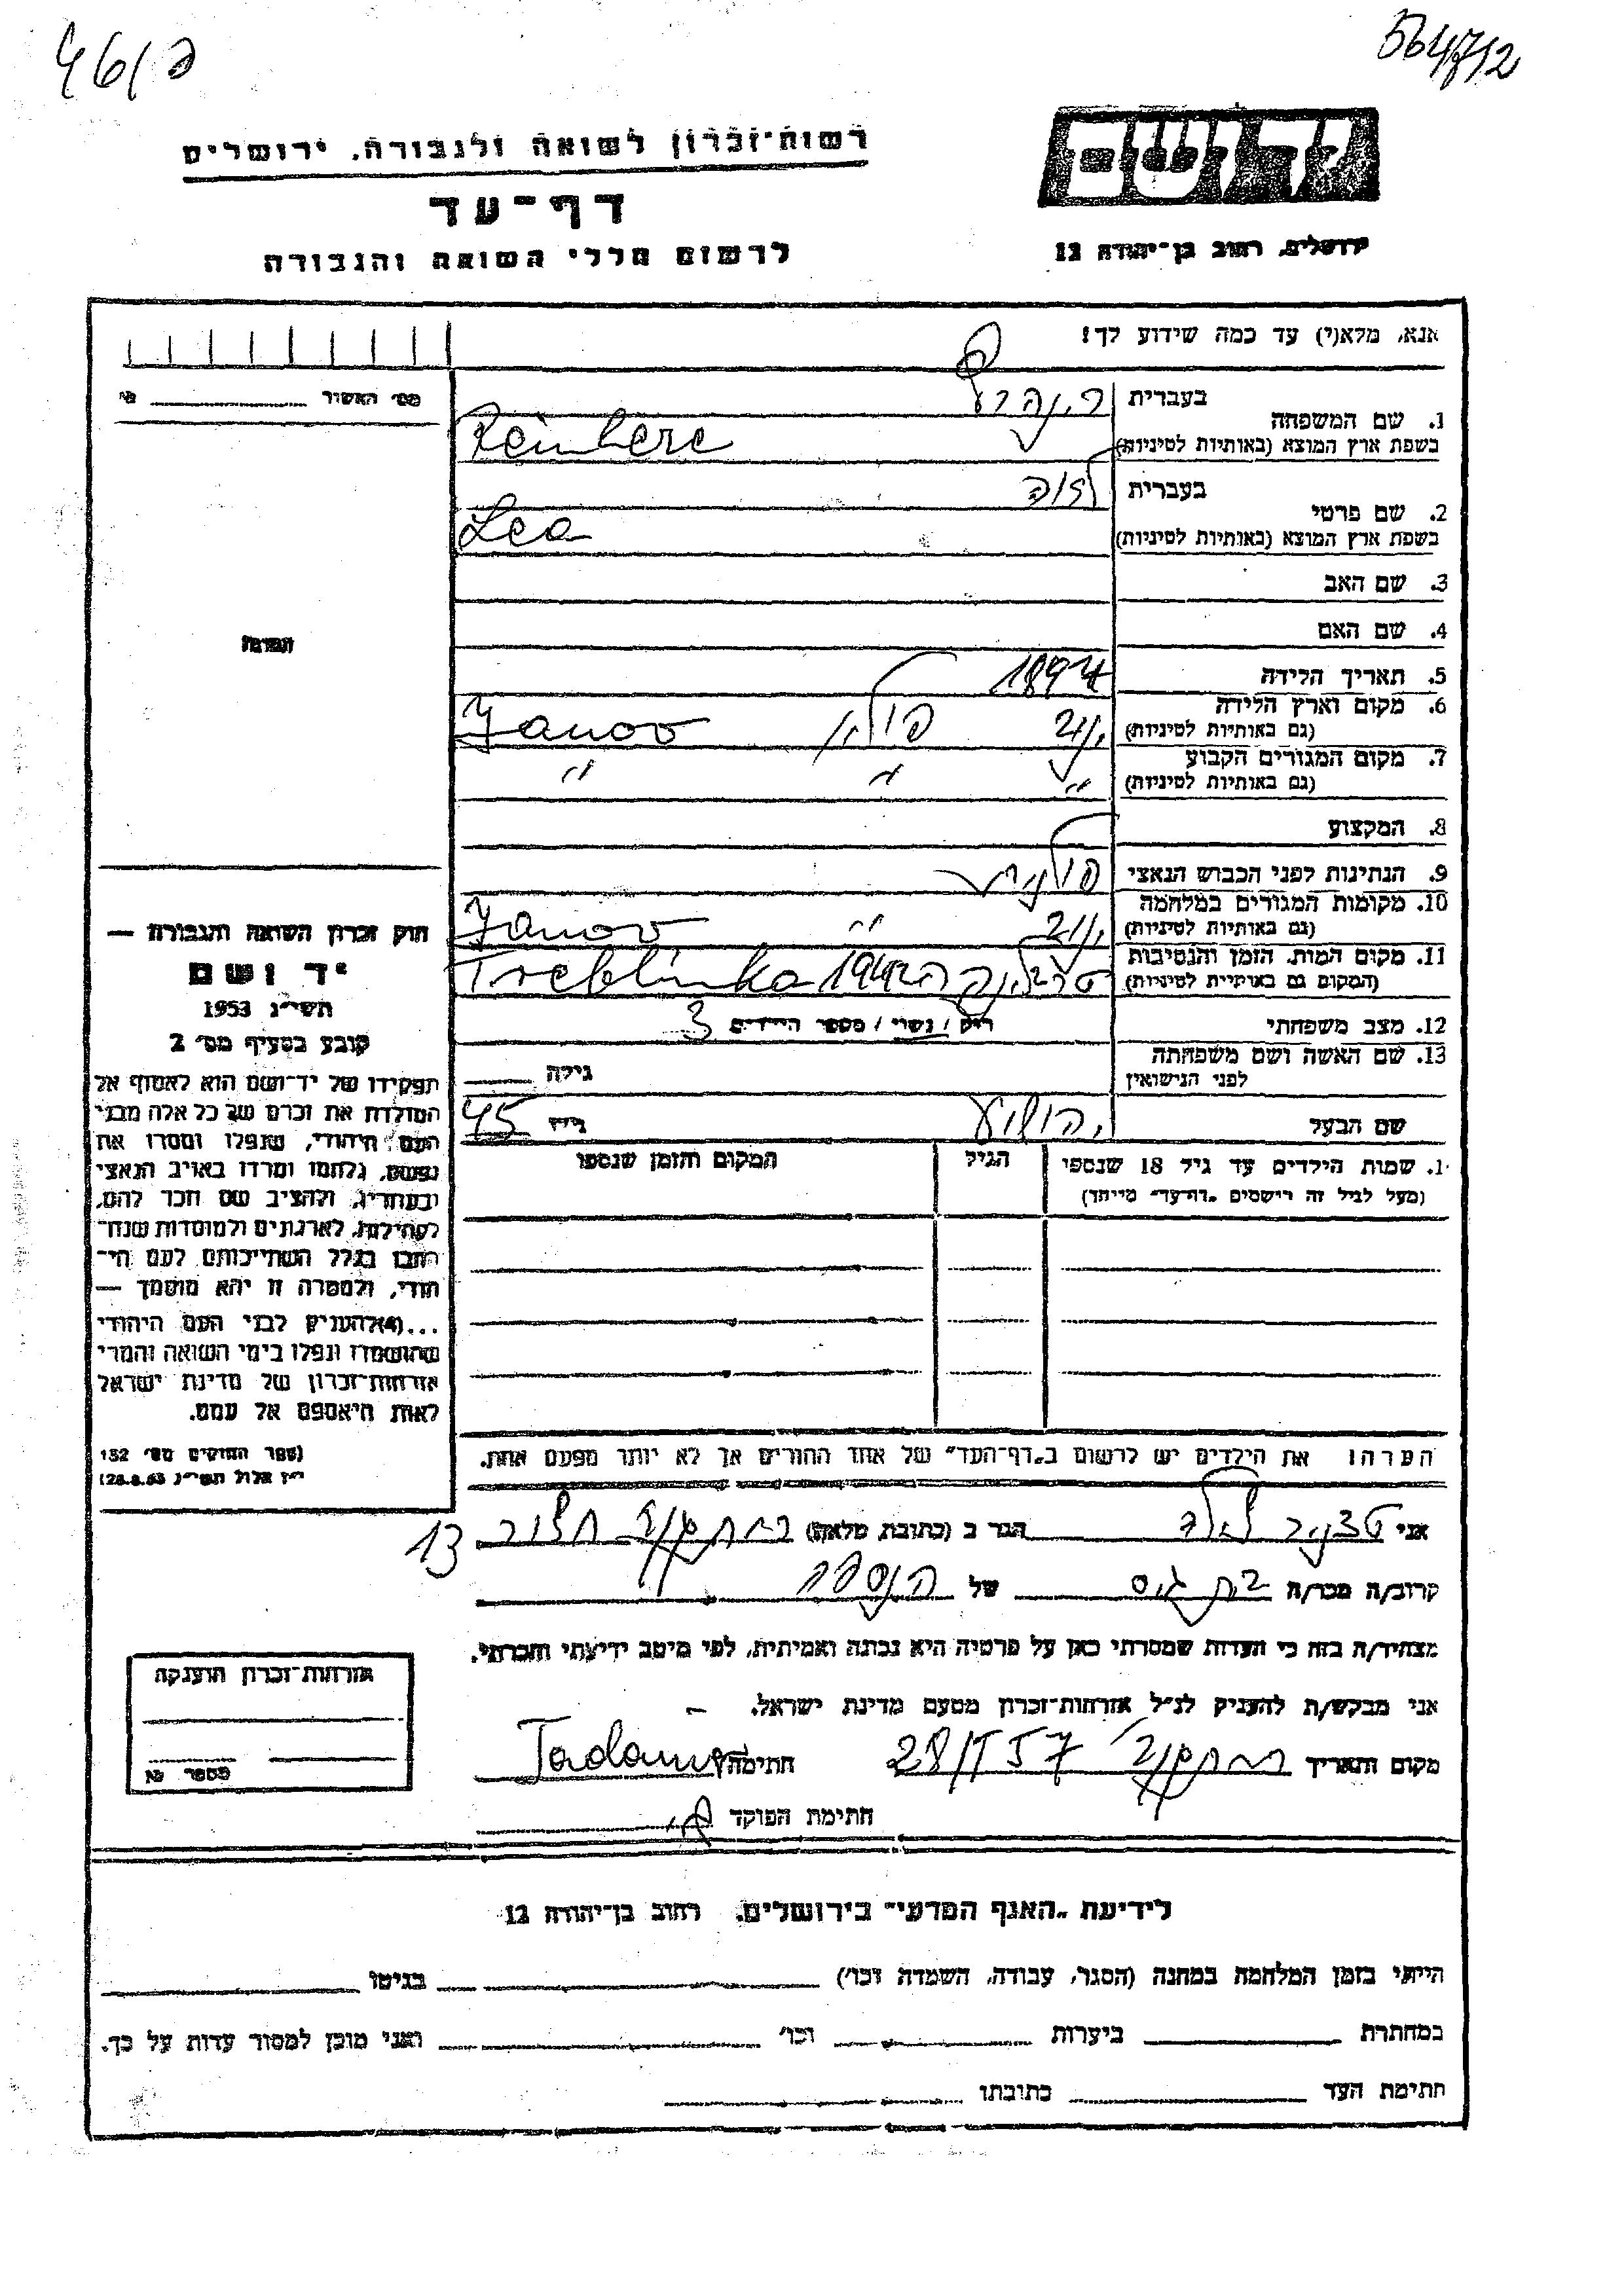 46/פ
564/712
יד ושם
ירושלים, רחוב בן־יהודה 12
רשות־זכרון לשואה ולגבורה, ירושלים
דף־עד
לרשום חללי השואה והגבורה
אנא, מלא(י) עד כמה שידוע לך!
מס׳ האשור № ______
1. שם המשפחה
בעברית
בשפת ארץ המוצא (באותיות לטיניות)
2. שם פרטי
בעברית לאה
בשפת ארץ המוצא (באותיות לטיניות) Lea
3. שם האב
4. שם האם
5. תאריך הלידה 1897
6. מקום וארץ הלידה
(גם באותיות לטיניות) ינוב פולין Janov
7. מקום המגורים הקבוע
(גם באותיות לטיניות) " " "
8. המקצוע
9. הנתינות לפני הכבוש הנאצי פולנית
10. מקומות המגורים במלחמה
(גם באותיות לטיניות) ינוב " Janov
11. מקום המות, הזמן והנסיבות
(המקום גם באותיות לטיניות) טרבלינקה ב1942 Treblinka
12. מצב משפחתי רווק / נשוי / מספר הילדים 3
13. שם האשה ושם משפחתה
לפני הנישואין גילה
שם הבעל יהושע גילו 45
1. שמות הילדים עד גיל 18 שנספו
(מעל לגיל זה רושמים „דף־עד״ מיוחד)
הגיל
המקום והזמן שנספו
הערה: את הילדים יש לרשום ב„דף־העד״ של אחד ההורים אך לא יותר מפעם אחת.
תמונה
חוק זכרון השואה והגבורה —
יד ושם
תשי״ג 1953
קובע בסעיף מס׳ 2
תפקידו של יד־ושם הוא לאסוף אל
המולדת את זכרם של כל אלה מבני
העם היהודי, שנפלו ומסרו את
נפשם, נלחמו ומרדו באויב הנאצי
ובעוזריו, ולהציב שם וזכר להם,
לקהילות, לארגונים ולמוסדות שנח־
רבו בגלל השתייכותם לעם הי־
הודי, ולמטרה זו יהא מוסמך —
...(4) להעניק לבני העם היהודי
שהושמדו ונפלו בימי השואה והמרי
אזרחות־זכרון של מדינת ישראל
לאות היאספם אל עמם.
(ספר החוקים מס׳ 132
י״ז אלול תשי״ג 28.8.53)
אני הגר ב (כתובת מלאה) 13
קרוב/ה מכר/ה בת גיס של הנספה
מצהיר/ה בזה כי העדות שמסרתי כאן על פרטיה היא נכונה ואמיתית, לפי מיטב ידיעתי והכרתי.
אני מבקש/ת להעניק לנ״ל אזרחות־זכרון מטעם מדינת ישראל. —
מקום ותאריך חתימה
חתימת הפוקד
אזרחות־זכרון הוענקה
מספר №
לידיעת „האגף המדעי״ בירושלים, רחוב בן־יהודה 12
הייתי בזמן המלחמה במחנה (הסגר, עבודה, השמדה וכו׳) בגיטו
במחתרת ביערות וכו׳ ואני מוכן למסור עדות על כך.
חתימת העד כתובתו